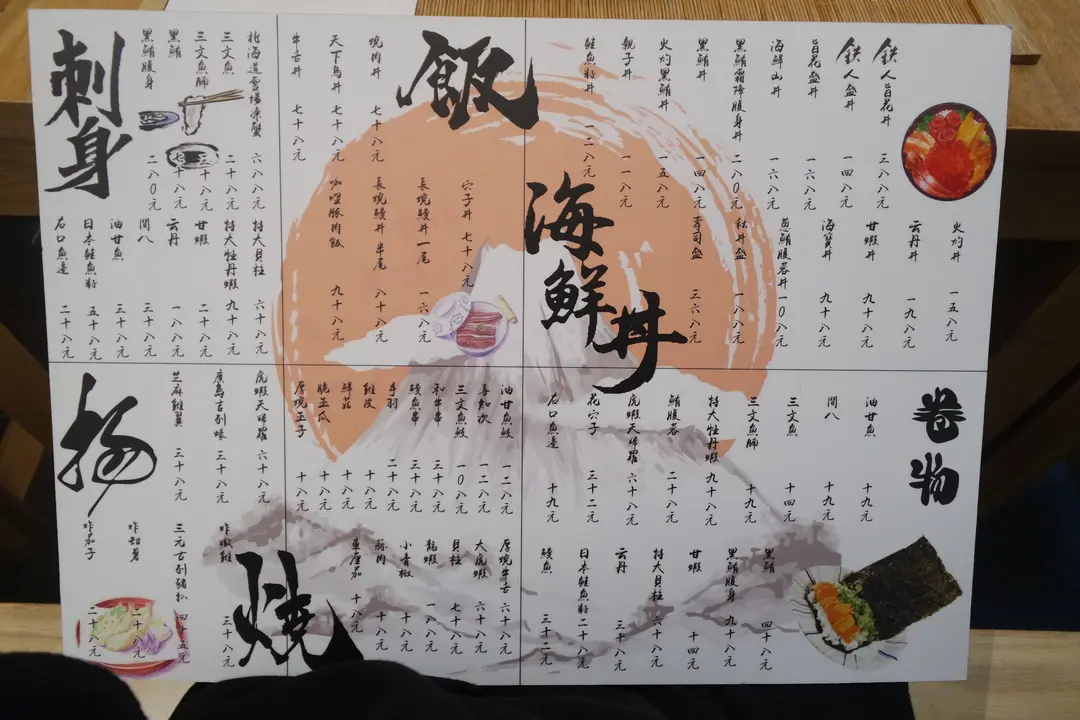 海鮮丼
鉄人旨花丼 三八八元
鉄人盛丼 一四八元
旨花盛丼 一六八元
海鮮山丼 一六八元
黑鮪霜降腹身丼 二八0元
黑鮪丼 一四八元
火灼黑鮪丼 一五八元
親子丼 一一八元
鮭魚籽丼 一二八元
火灼丼 一五八元
云丹丼 一九八元
甘蝦丼 九十八元
海寶丼 九十八元
魚鮪腹蓉丼 一0八元
秋丼盛 一八八元
壽司盛 三六八元
飯
燒肉丼 七十八元
天下鳥丼 七十八元
牛舌丼 七十八元
穴子丼 七十八元
長燒鰻丼一尾 一六八元
長燒鰻丼半尾 八十八元
咖喱豚肉飯 九十八元
刺身
北海道雪場凍蟹 六八八元
三文魚 二十八元
三文魚腩 三十八元
黑鮪 七十八元
黑鮪腹身 二八0元
特大貝柱 六十八元
特大牡丹蝦 九十八元
甘蝦 二十八元
云丹 一八八元
間八 三十八元
油甘魚 三十八元
日本鮭魚籽 五十八元
左口魚邊 二十八元
卷物
油甘魚 十九元
間八 十九元
三文魚 十四元
三文魚腩 十九元
特大牡丹蝦 九十八元
鮪腹蓉 二十八元
虎蝦天婦羅 六十八元
花穴子 三十二元
左口魚邊 十九元
黑鮪 四十八元
黑鮪腹身 九十八元
甘蝦 十四元
特大貝柱 六十八元
云丹 三十八元
日本鮭魚籽 二十八元
鰻魚 三十二元
燒
油甘魚鮫 一二八元
喜知次 一二八元
三文魚鮫 一0八元
和牛串 三十八元
鰻魚串 三十八元
手羽 二十八元
雞皮 十八元
鮮菇 十八元
脆玉瓜 十八元
厚燒玉子 十八元
厚燒牛舌 六十八元
大虎蝦 六十八元
貝柱 七十八元
龍蝦 一八八元
小青椒 十八元
豚肉 十八元
車厘茄 十八元
揚
虎蝦天婦羅 六十八元
廣島吉列蠔 三十八元
芝麻雞翼 三十八元
炸嫩雞 三十八元
三元吉列豬扒 四十五元
炸知葛 二十八元
炸茄子 二十八元